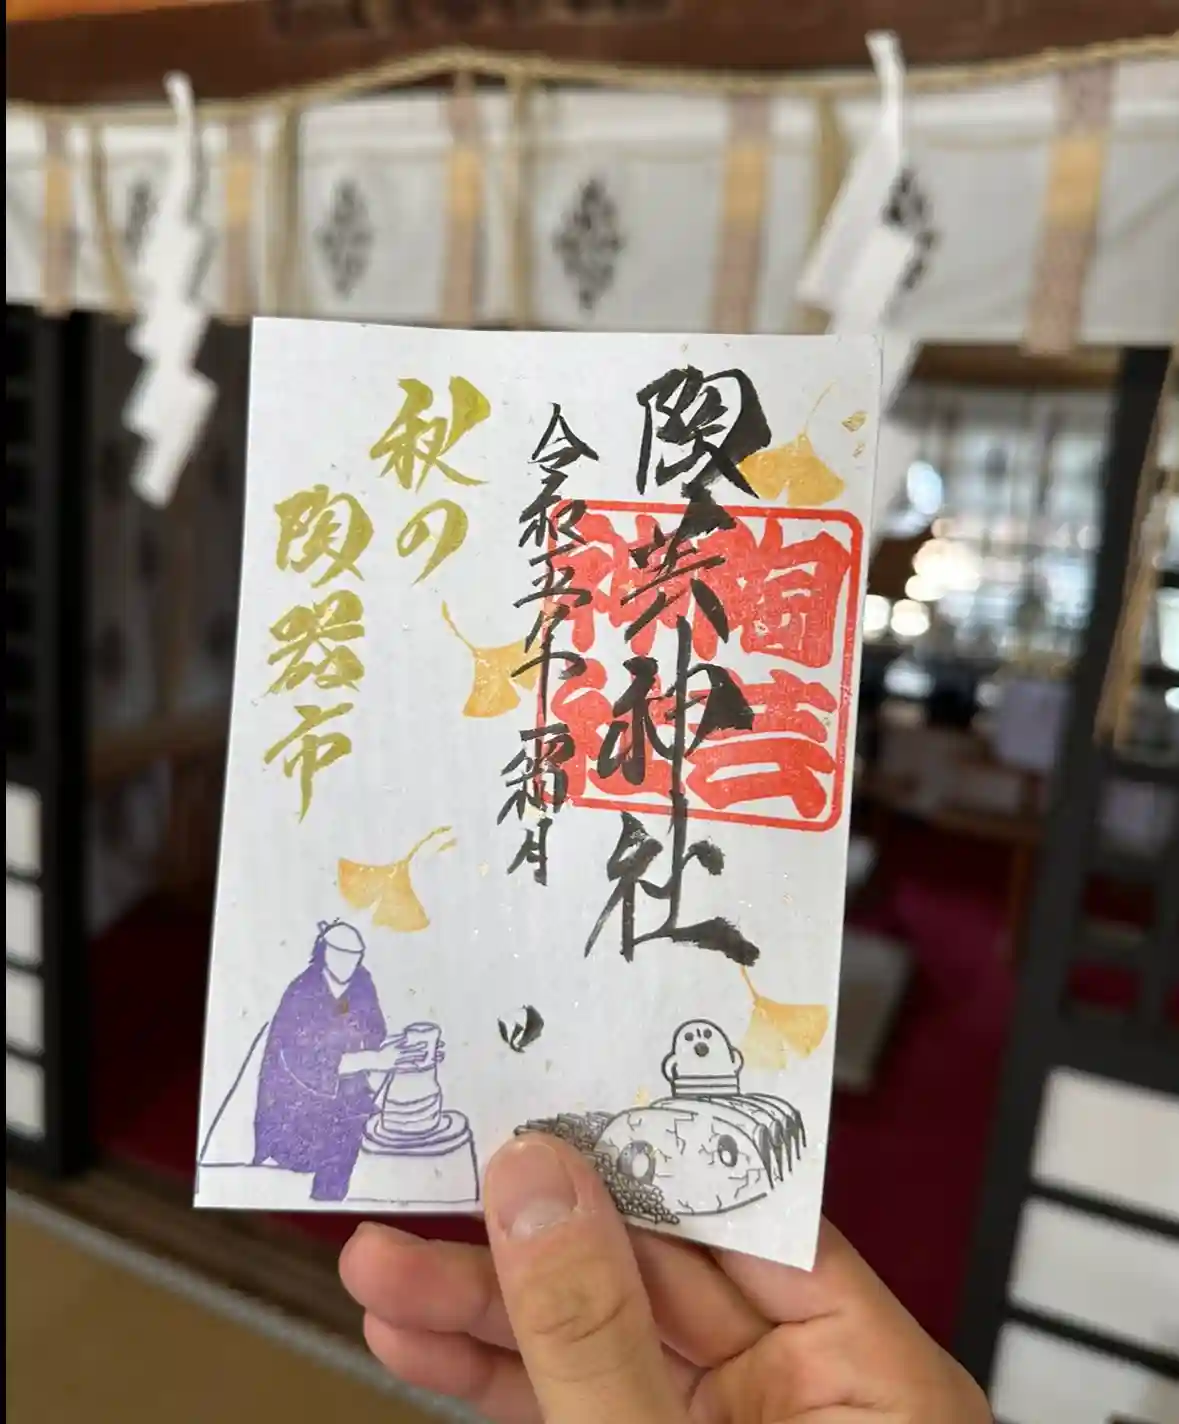 陶芸神社
陶芸
神社
令和五年霜月
日
秋の
陶器市